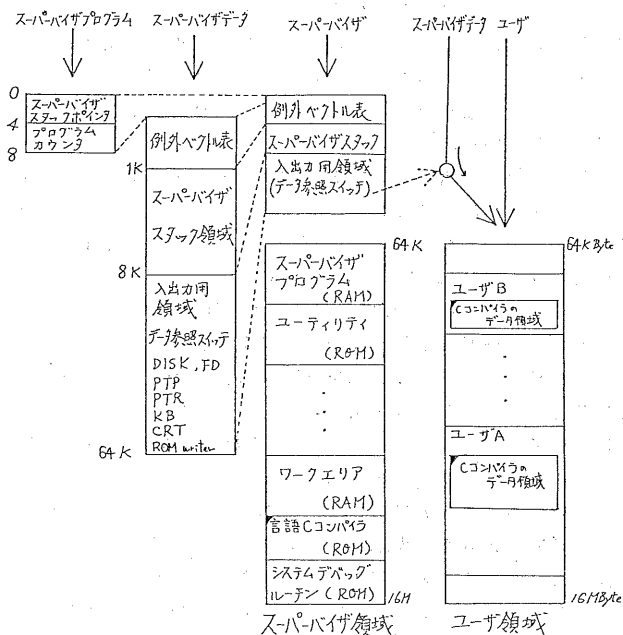 スーパーバイザプログラム
スーパーバイザデータ
スーパーバイザ
スーパーバイザデータ
ユーザ
0
4
8
スーパーバイザ
スタックポインタ
プログラム
カウンタ
例外ベクトル表
1K
スーパーバイザ
スタック領域
8K
入出力用
領域
データ参照スイッチ
DISK, FD
PTP
PTR
KB
CRT
ROM writer
64K
例外ベクトル表
スーパーバイザスタック
入出力用領域
(データ参照スイッチ)
64K
スーパーバイザ
プログラム
(RAM)
ユーティリティ
(ROM)
ワークエリア
(RAM)
言語Cコンパイラ
(ROM)
システムデバッグ
ルーチン (ROM)
16M
スーパーバイザ領域
64K Byte
ユーザB
Cコンパイラの
データ領域
ユーザA
Cコンパイラの
データ領域
16MByte
ユーザ領域